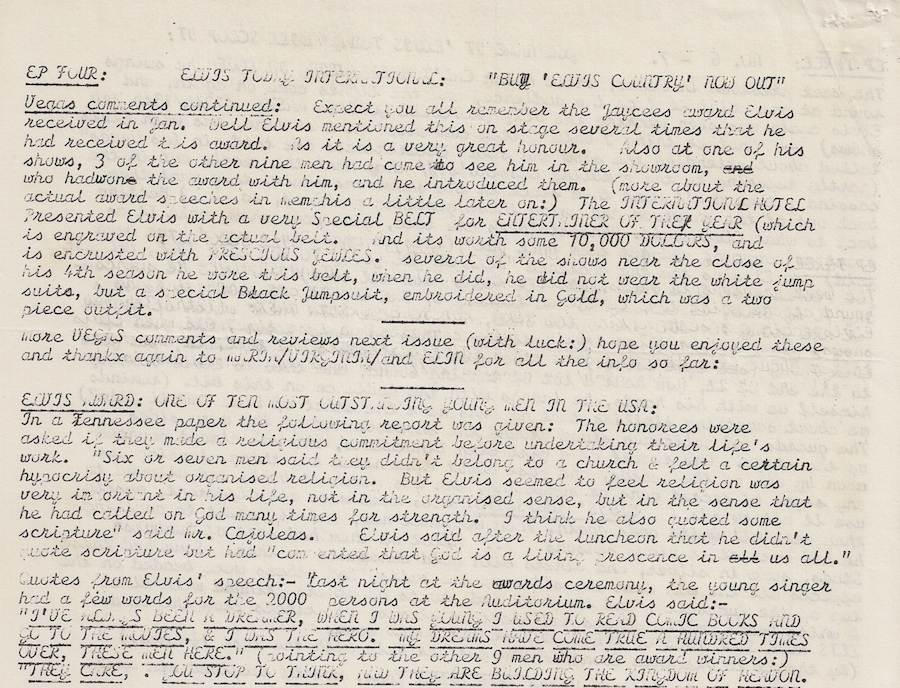 EP FOUR: ELVIS TODAY INTERNATIONAL: "BUY 'ELVIS COUNTRY' NOW OUT"
Vegas comments continued: Expect you all remember the Jaycees award Elvis
received in Jan. Well Elvis mentioned this on stage several times that he
had received this award. As it is a very great honour. Also at one of his
shows, 3 of the other nine men had come to see him in the showroom, and
who hadwone the award with him, and he introduced them. (more about the
actual award speeches in memphis a little later on:) The INTERNATIONAL HOTEL
Presented Elvis with a very Special BELT for ENTERTAINER OF THE YEAR (which
is engraved on the actual belt. And its worth some 10,000 DOLLARS, and
is encrusted with PRESCIOUS JEWLES. several of the shows near the close of
his 4th season he wore this belt, when he did, he did not wear the white jump
suits, but a special Black Jumpsuit, embroidered in Gold, which was a two
piece outfit.
more VEGAS comments and reviews next issue (with luck:) hope you enjoyed these
and thankx again to MARIA/VIRGINIA/and ELIN for all the info so far:
ELVIS AWARD: ONE OF TEN MOST OUTSTANDING YOUNG MEN IN THE USA:
In a Tennessee paper the following report was given: The honorees were
asked if they made a religious commitment before undertaking their life's
work. "Six or seven men said they didn't belong to a church & felt a certain
hypocrisy about organised religion. But Elvis seemed to feel religion was
very important in his life, not in the organised sense, but in the sense that
he had called on God many times for strength. I think he also quoted some
scripture" said Mr. Cajoleas. Elvis said after the luncheon that he didn't
quote scripture but had "commented that God is a living prescence in all us all."
Quotes from Elvis' speech:- Last night at the awards ceremony, the young singer
had a few words for the 2000 persons at the Auditorium. Elvis said:-
"I'VE ALWAYS BEEN A DREAMER, WHEN I WAS YOUNG I USED TO READ COMIC BOOKS AND
GO TO THE MOVIES, & I WAS THE HERO. MY DREAMS HAVE COME TRUE A HUNDRED TIMES
OVER, THESE MEN HERE." (pointing to the other 9 men who are award winners:)
"THEY CARE, . YOU STOP TO THINK, AND THEY ARE BUILDING THE KINGDOM OF HEAVON.